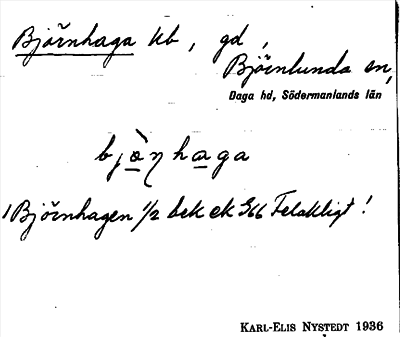 Björnhaga Ub, gd,
Björnlunda sn,
Daga hd, Södermanlands län
bjò̱ŋha̱ga
1 Björnhagen 1/2 bek ek 566 Felaktigt!
KARL-ELIS NYSTEDT 1936